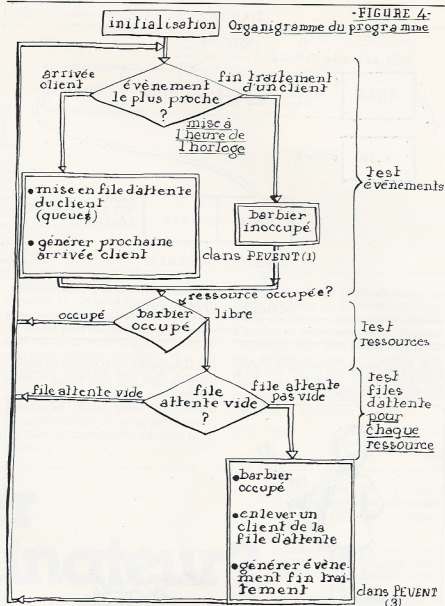 -FIGURE 4-
initialisation
Organigramme du programme
arrivée
client
évènement
le plus proche
?
fin traitement
d'un client
mise à
l'heure de
l'horloge
test
évènements
• mise en file d'attente
du client
(queue$)
• générer prochaine
arrivée client
barbier
inoccupé
dans PEVENT(1)
ressource occupée?
occupé
barbier
occupé
libre
test
ressources
file attente vide
file
attente vide
?
file attente
pas vide
test
files
d'attente
pour
chaque
ressource
• barbier
occupé
• enlever un
client de la
file d'attente
• générer évène-
ment fin trai-
tement
dans PEVENT
(3)